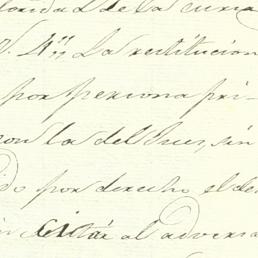 toridad de la curia
V. 4ª, La restitucion
por persona pri-
con la del Juez, sin
do por derecho el de
citár al adversa